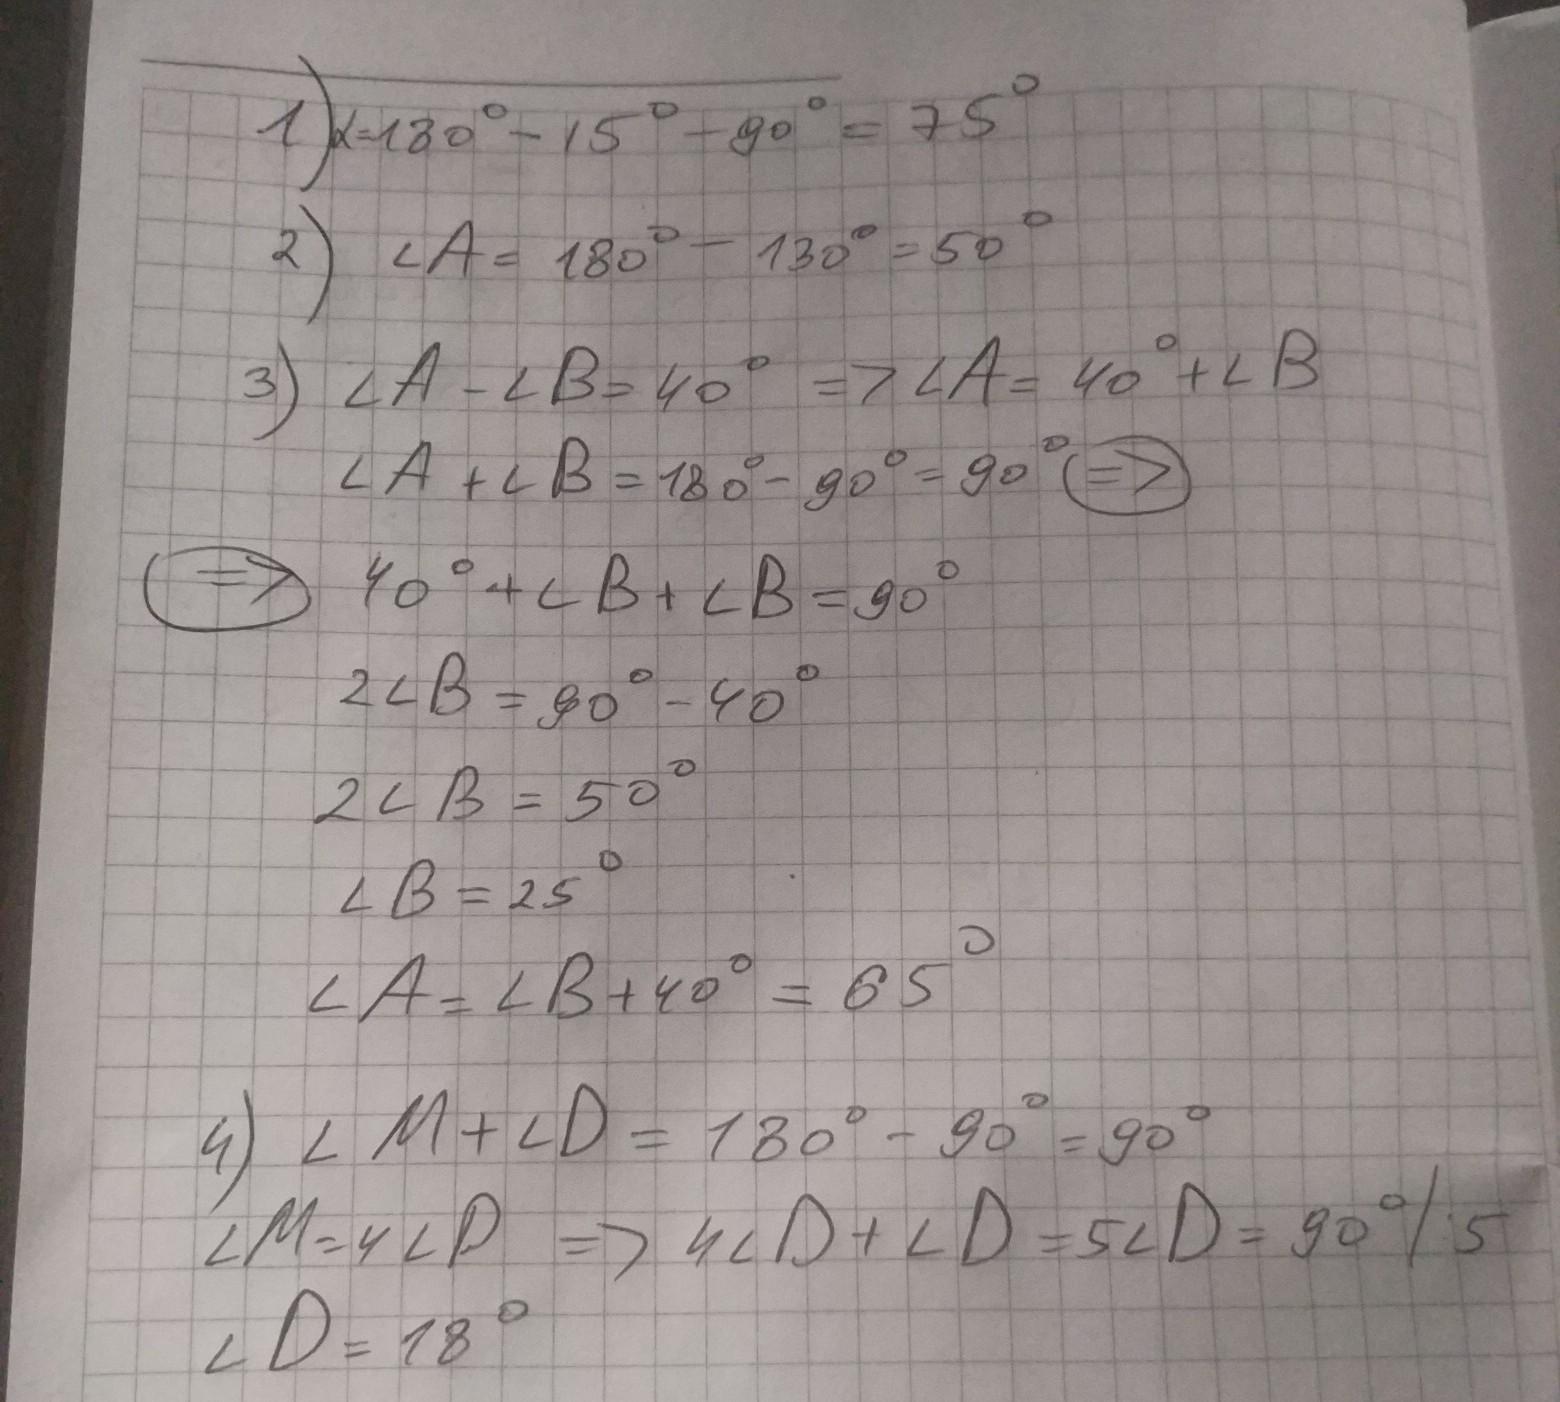 1) α=180°-15°-90°=75°
2) ∠A=180°-130°=50°
3) ∠A-∠B=40° => ∠A=40°+∠B
∠A+∠B=180°-90°=90° =>
=> 40°+∠B+∠B=90°
2∠B=90°-40°
2∠B=50°
∠B=25°
∠A=∠B+40°=65°
4) ∠M+∠D=180°-90°=90°
∠M=4∠D => 4∠D+∠D=5∠D=90° /:5
∠D=18°